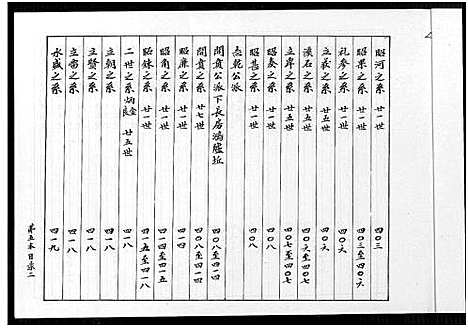 昭河之系 廿一世 四〇三
昭果之系 廿一世 四〇三至四〇六
礼参之系 廿一世 四〇六
立義之系 廿五世 四〇六
溪石之系 廿五世 四〇六
立岸之系 廿五世 四〇七至四〇七
昭奏之系 廿一世 四〇八
昭甚之系 廿一世 四〇八
乾公派
開貴公派下長房
開貴之系 廿七世 四〇八至四一四
昭廉之系 廿一世 四一四
昭角之系 廿一世 四一四至四一五
昭銖之系 廿一世 四一五至四一八
二世之系 廿五世 四一八
立朝之系 四一八
立賢之系 四一八
立當之系 四一八
永盛之系 四一九
第五本目录二